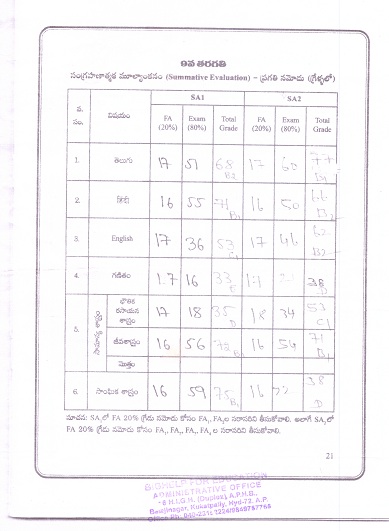 9వ తరగతి
సంగ్రహణాత్మక మూల్యాంకనం (Summative Evaluation) – ప్రగతి నమోదు (గ్రేడ్లలో)
వ. సం. విషయం SA1 SA2
FA (20%) Exam (80%) Total Grade FA (20%) Exam (80%) Total Grade
1. తెలుగు 17 51 68 B2 17 60 77 B1
2. हिंदी 16 55 71 B1 16 50
3. English 17 36 53 C1 17 46 B2
4. గణితం 17 16 33
5. సామాన్య శాస్త్రం
భౌతిక రసాయన శాస్త్రం 17 18 35 D 18 34 C1
జీవశాస్త్రం 16 56 72 B1 16 54 71 B1
మొత్తం
6. సాంఘిక శాస్త్రం 16 59 75 B1 16 38 D
సూచన: SA₁లో FA 20% గ్రేడు నమోదు కోసం FA₁, FA₂ల సరాసరిని తీసుకోవాలి. అలాగే SA₂లో
FA 20% గ్రేడు నమోదు కోసం FA₁, FA₂, FA₃, FA₄ ల సరాసరిని తీసుకోవాలి.
21
BIGHELP FOR EDUCATION
ADMINISTRATIVE OFFICE
16 H.I.G.H. (Duplex), A.P.H.B.,
Kukatpally, Hyd-72. A.P.